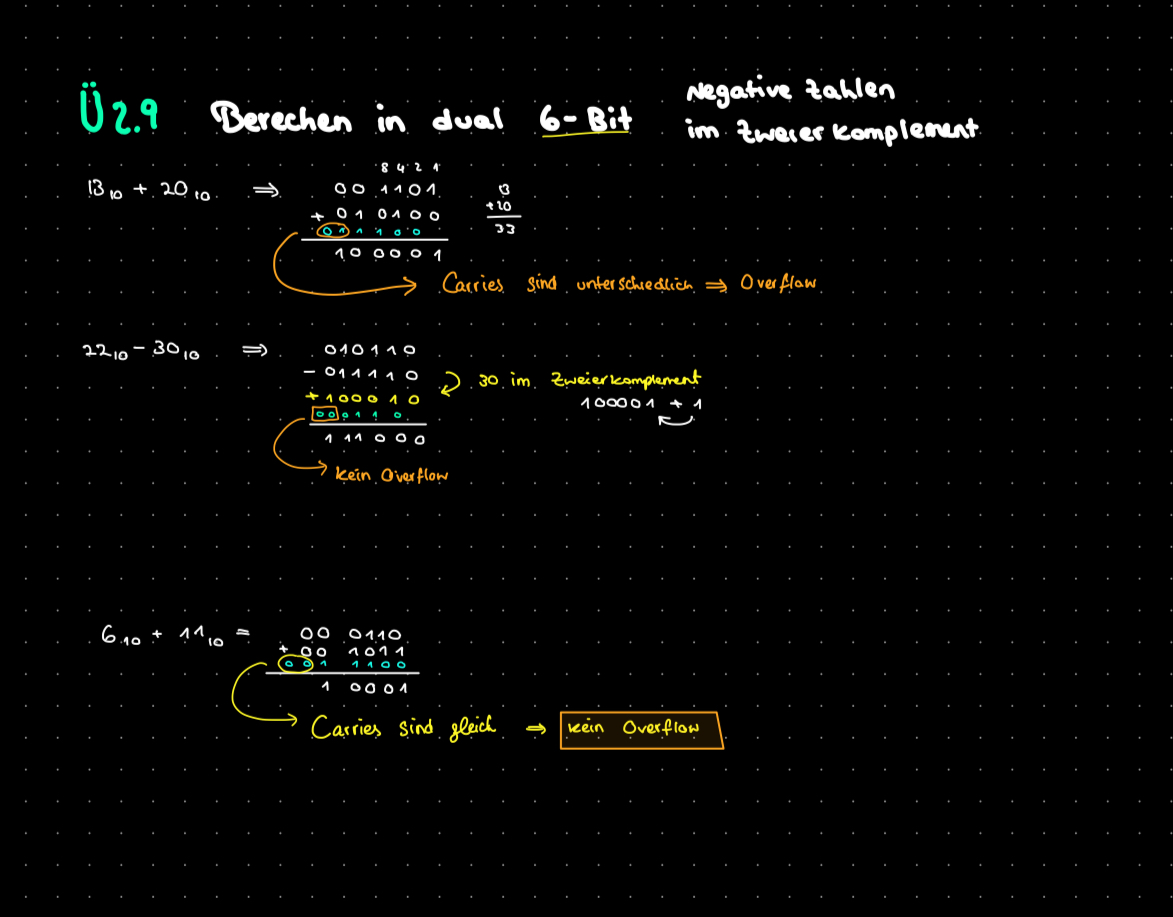 Ü 2.9 Berechen in dual 6-Bit
Negative Zahlen
im Zweier Komplement
8 4 2 1
13₁₀ + 20₁₀ ⇒ 00 1101
+ 01 0100
01 1 1 0 0
10 0001
13
+20
33
Carries sind unterschiedlich ⇒ Overflow
22₁₀ - 30₁₀ ⇒ 010110
- 011110
+ 100010
00 0 1 1 0
111000
30 im Zweierkomplement
100001 + 1
kein Overflow
6₁₀ + 11₁₀ = 00 0110
+ 00 1011
00 1 1 1 0 0
1 0001
Carries sind gleich ⇒ kein Overflow